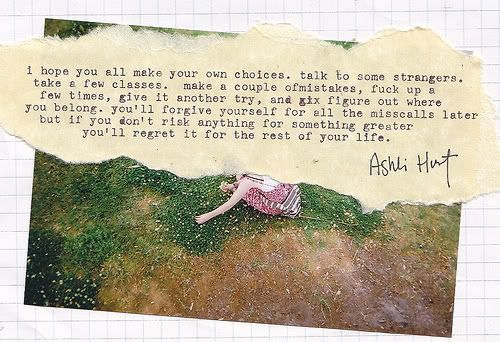 i hope you all make your own choices. talk to some strangers.
take a few classes.  make a couple ofmistakes, fuck up a
few times, give it another try, and gix figure out where
you belong. you'll forgive yourself for all the misscalls later
but if you don't risk anything for something greater
you'll regret it for the rest of your life.